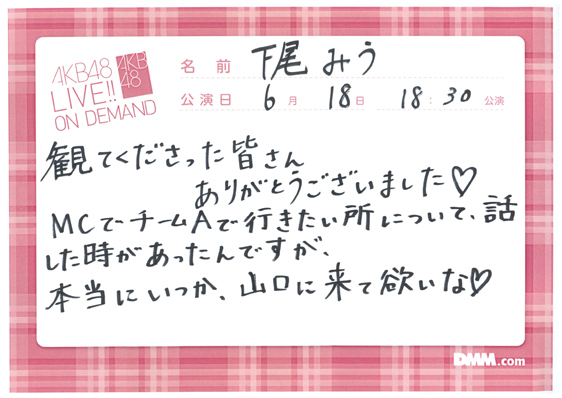 AKB48
LIVE!!
ON DEMAND
AKB
48
名前 下尾みう
公演日 6月 18日 18:30 公演
観てくださった皆さん
ありがとうございました♡
MCでチームAで行きたい所について、話
した時があったんですが、
本当にいつか、山口に来て欲いな♡
DMM.com